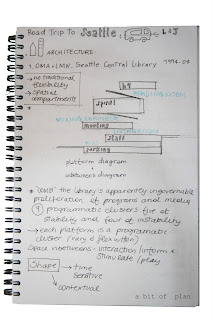 Road Trip To Seattle: L+J
ARCHITECTURE
1. OMA+LMN, Seattle Central Library 1994-04
→ no traditional flexibility
→ spatial compartments
hq
READING ROOM
spiral
MIXING CHAMBER
meeting
staff
parking
platform diagram
+
inbetweens diagram
the library's apparently ungovernable
proliferation of programs and media
9 programmatic clusters five of
stability and four of instability
→ each platform is a programmatic
cluster
Space inbetweens - interaction/inform &
stimulate/play
Shape → time
sensitive
→ contextual
a bit of plan